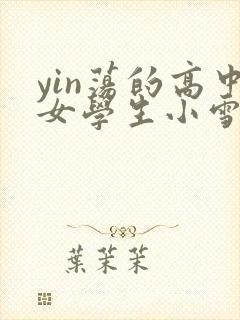 yin蕩的高中
女學生小雪
葉茉茉